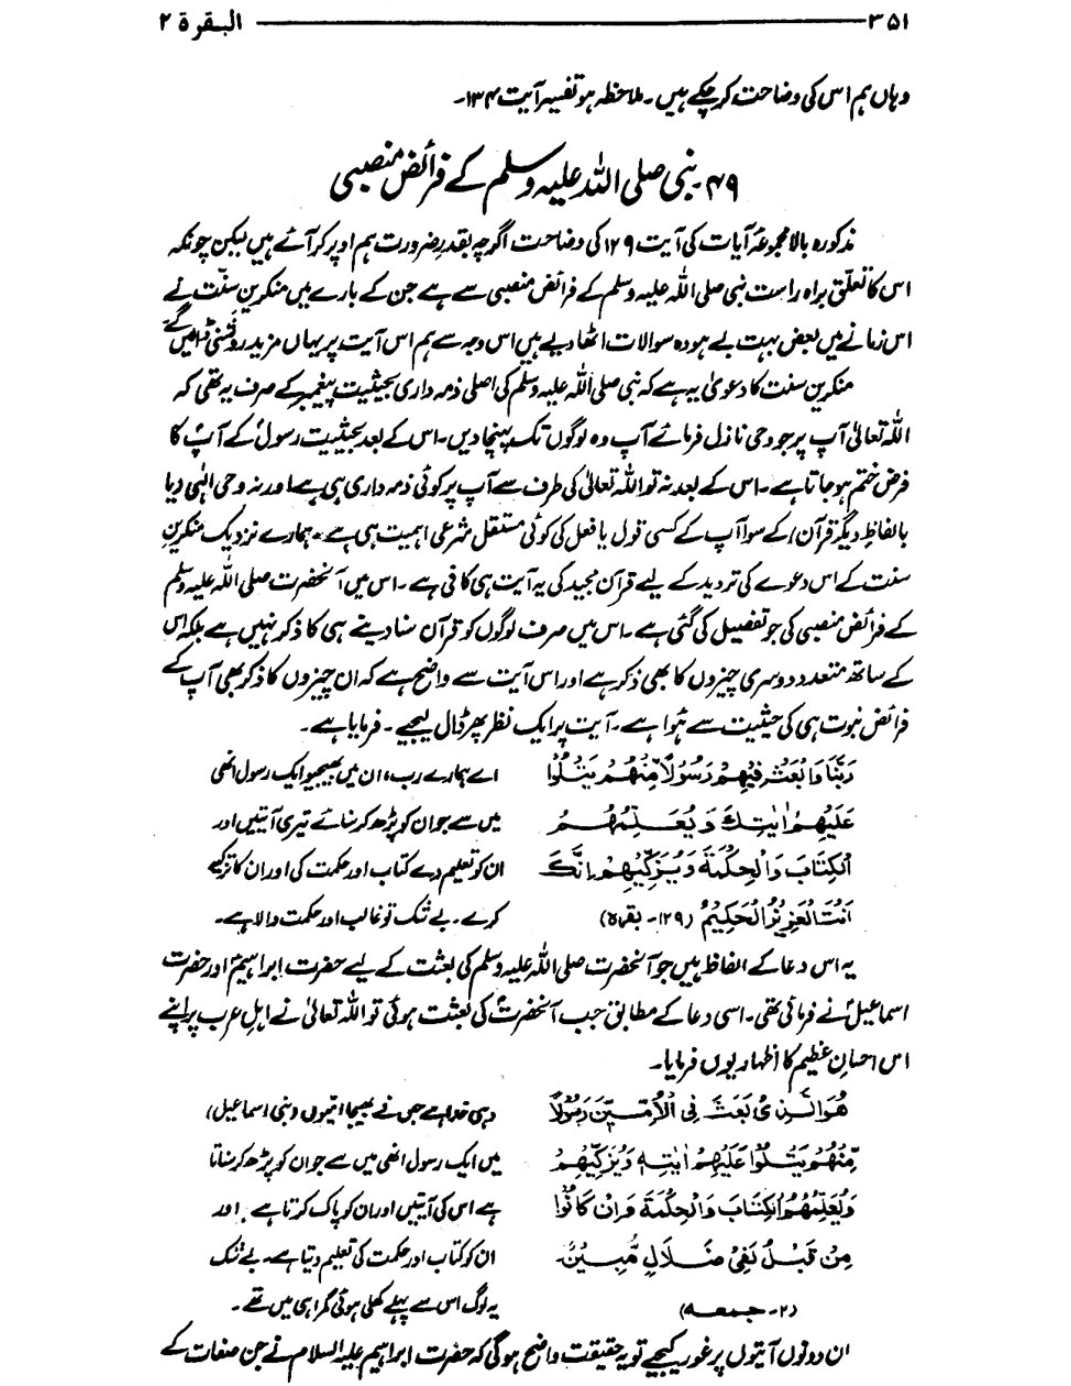 البقرة ۲ ۳۵۱
وہاں ہم اس کی وضاحت کر چکے ہیں۔ ملاحظہ ہو تفسیر آیت ۱۳۴۔
۴۹۔ نبی صلی اللہ علیہ وسلم کے فرائض منصبی
مذکورہ بالا مجموعۂ آیات کی آیت ۱۲۹ کی وضاحت اگرچہ بقدر ضرورت ہم اوپر کر آئے ہیں لیکن چونکہ
اس کا تعلق براہ راست نبی صلی اللہ علیہ وسلم کے فرائض منصبی سے ہے جن کے بارے میں منکرین سنت نے
اس زمانے میں بعض بہت بے ہودہ سوالات اٹھا دیے ہیں اس وجہ سے ہم اس آیت پر یہاں مزید روشنی ڈالیں گے
منکرین سنت کا دعویٰ یہ ہے کہ نبی صلی اللہ علیہ وسلم کی اصلی ذمہ داری بحیثیت پیغمبر کے صرف یہ تھی کہ
اللہ تعالیٰ آپ پر جو وحی نازل فرمائے آپ وہ لوگوں تک پہنچا دیں۔ اس کے بعد بحیثیت رسول کے آپ کا
فرض ختم ہو جاتا ہے۔ اس کے بعد نہ تو اللہ تعالیٰ کی طرف سے آپ پر کوئی ذمہ داری ہی ہے اور نہ وحی الٰہی (یا
بالفاظ دیگر قرآن) کے سوا آپ کے کسی قول یا فعل کی کوئی مستقل شرعی اہمیت ہی ہے۔ ہمارے نزدیک منکرینِ
سنت کے اس دعوے کی تردید کے لیے قرآن مجید کی یہ آیت ہی کافی ہے۔ اس میں آنحضرت صلی اللہ علیہ وسلم
کے فرائض منصبی کی جو تفصیل کی گئی ہے۔ اس میں صرف لوگوں کو قرآن سنا دینے ہی کا ذکر نہیں ہے بلکہ اس
کے ساتھ متعدد دوسری چیزوں کا بھی ذکر ہے اور اس آیت سے واضح ہے کہ ان چیزوں کا ذکر بھی آپ کے
فرائض نبوت ہی کی حیثیت سے ہوا ہے۔ آیت پر ایک نظر پھر ڈال لیجیے۔ فرمایا ہے۔
رَبَّنَا وَابْعَثْ فِيْهِمْ رَسُوْلًا مِّنْهُمْ يَتْلُوْا
عَلَيْهِمْ اٰيٰتِكَ وَيُعَلِّمُهُمُ
الْكِتَابَ وَالْحِكْمَةَ وَيُزَكِّيْهِمْ اِنَّكَ
اَنْتَ الْعَزِيْزُ الْحَكِيْمُ (۱۲۹۔ بقرہ)
اے ہمارے رب، ان میں بھیجیو ایک رسول انھی
میں سے جو ان کو پڑھ کر سنائے تیری آیتیں اور
ان کو تعلیم دے کتاب اور حکمت کی اور ان کا تزکیہ
کرے۔ بے شک تو غالب اور حکمت والا ہے۔
یہ اس دعا کے الفاظ ہیں جو آنحضرت صلی اللہ علیہ وسلم کی بعثت کے لیے حضرت ابراہیمؑ اور حضرت
اسماعیلؑ نے فرمائی تھی۔ اسی دعا کے مطابق جب آنحضرتؐ کی بعثت ہوئی تو اللہ تعالیٰ نے اہل عرب پر اپنے
اس احسانِ عظیم کا اظہار یوں فرمایا۔
هُوَ الَّذِىْ بَعَثَ فِى الْاُمِّيّٖنَ رَسُوْلًا
مِّنْهُمْ يَتْلُوْا عَلَيْهِمْ اٰيٰتِهٖ وَيُزَكِّيْهِمْ
وَيُعَلِّمُهُمُ الْكِتَابَ وَالْحِكْمَةَ وَاِنْ كَانُوْا
مِنْ قَبْلُ لَفِىْ ضَلَالٍ مُّبِيْنٍ۔
(۲۔ جمعہ)
وہی خدا ہے جس نے بھیجا امیوں (بنی اسماعیل)
میں ایک رسول انھی میں سے جو ان کو پڑھ کر سناتا
ہے اس کی آیتیں اور ان کو پاک کرتا ہے۔ اور
ان کو کتاب اور حکمت کی تعلیم دیتا ہے۔ بے شک
یہ لوگ اس سے پہلے کھلی ہوئی گمراہی میں تھے۔
ان دونوں آیتوں پر غور کیجیے تو یہ حقیقت واضح ہوگی کہ حضرت ابراہیم علیہ السلام نے جن صفات کے